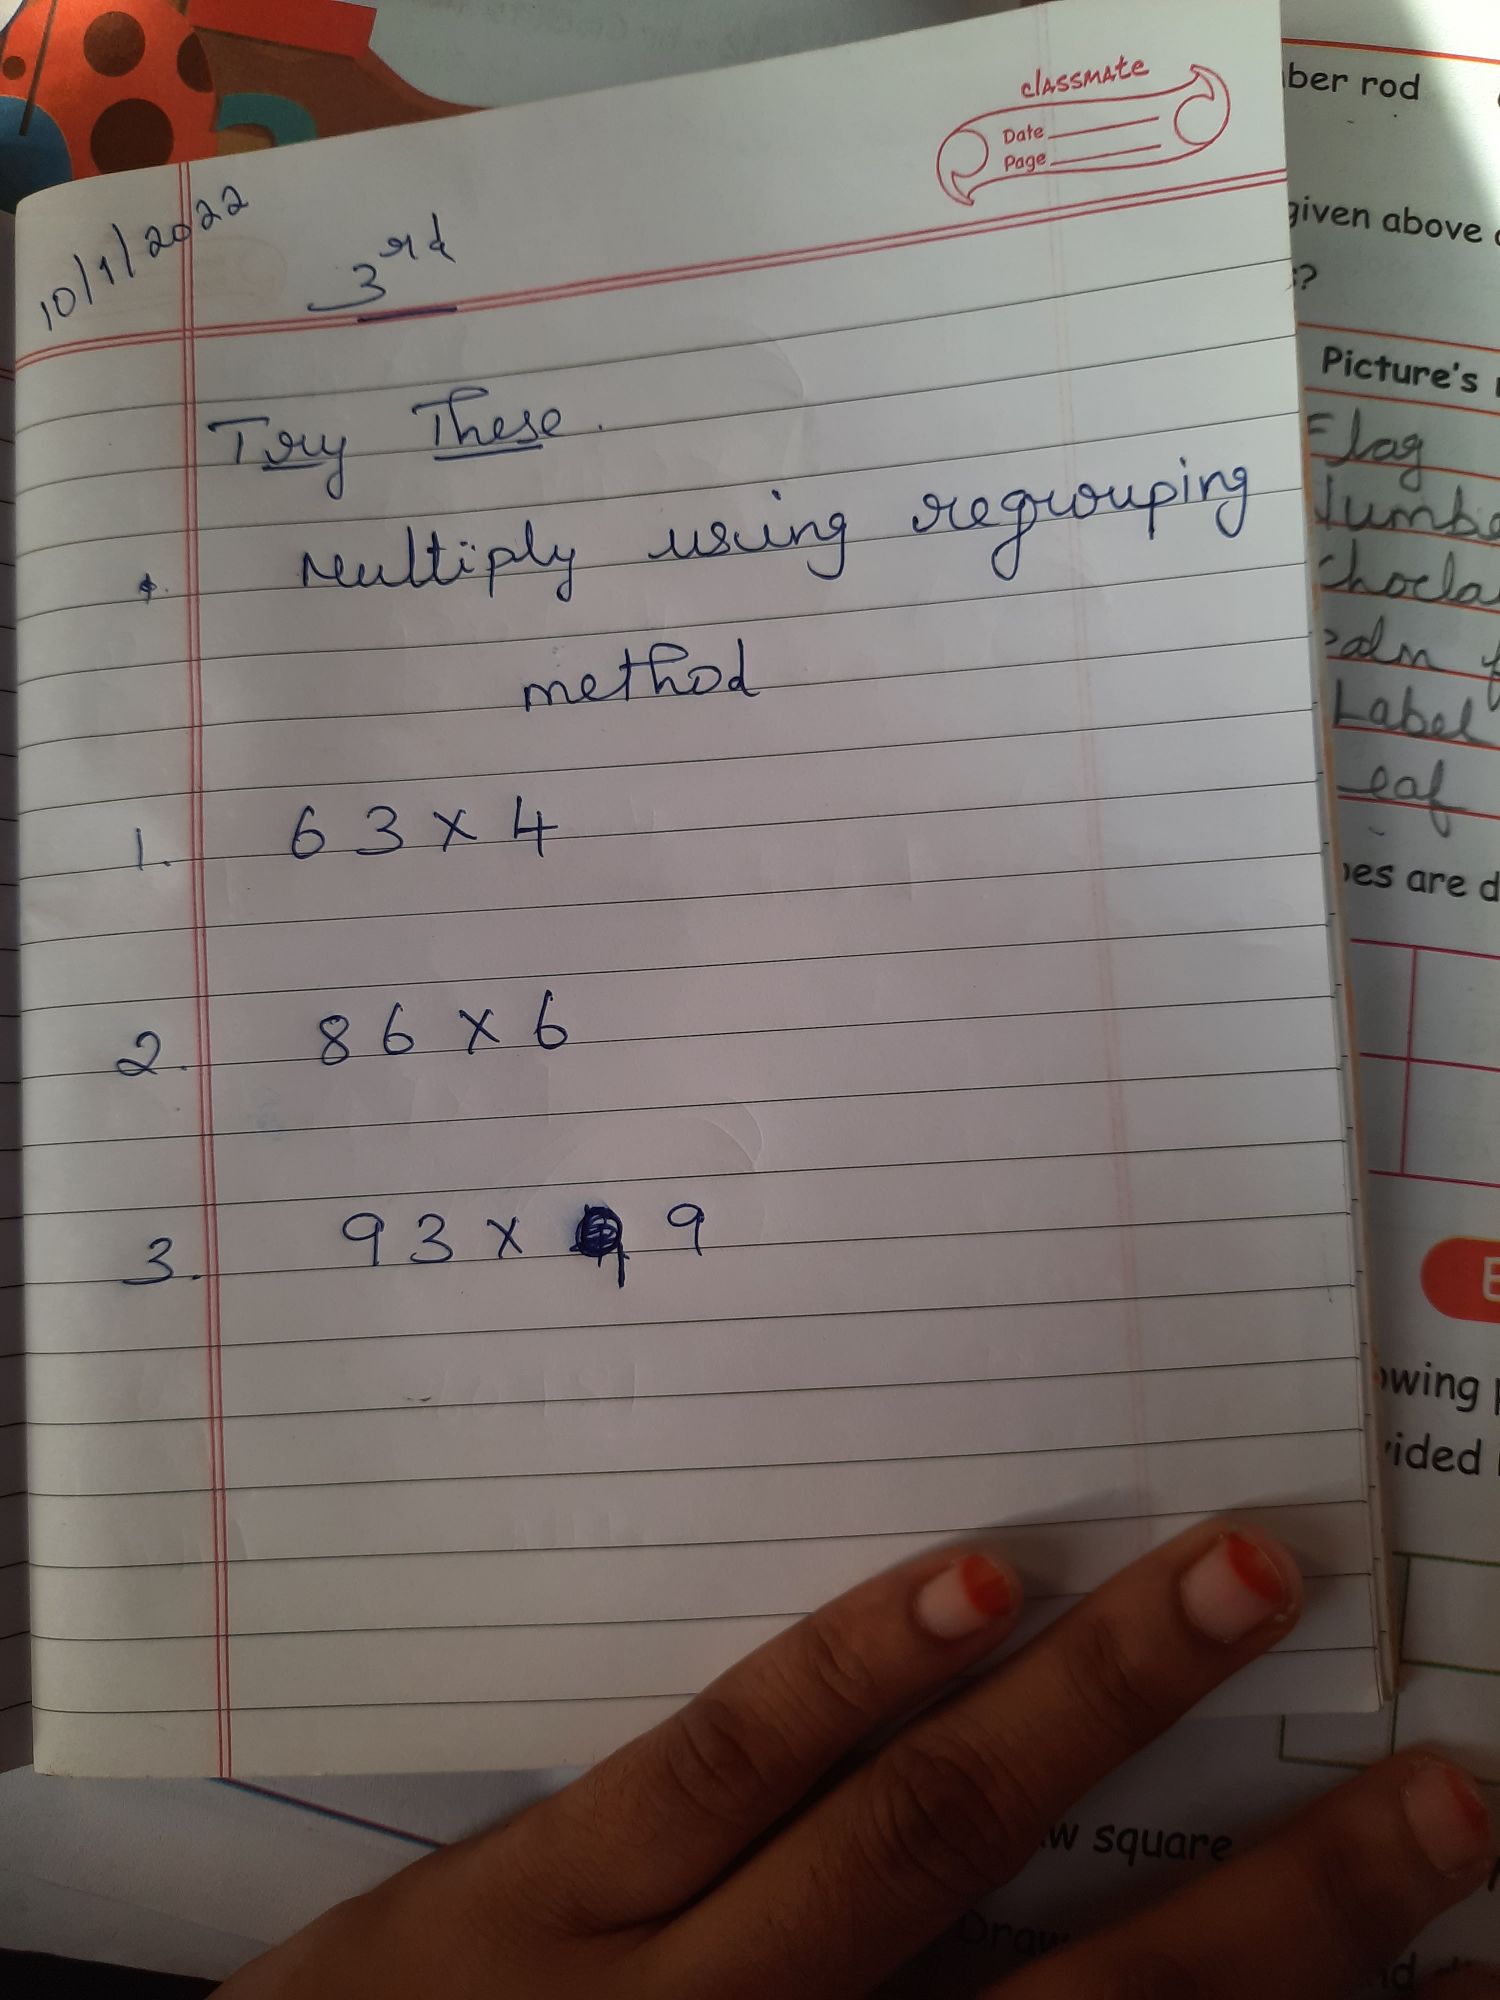 classmate
Date
Page
10/1/2022
3rd
Try These.
Multiply using regrouping
method
1. 63 x 4
2. 86 x 6
3. 93 x 9
ber rod
given above
?
Picture's
Flag
Chocla
Label
eaf
es are d
owing p
vided
w square
Draw